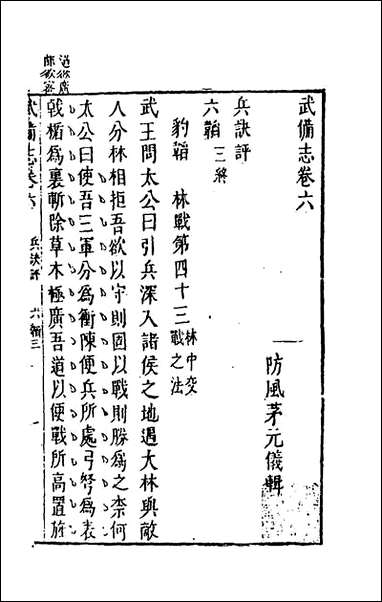 武備志卷六
防風茅元儀輯
兵訣評
六韜三
豹韜 林戰第四十三 林中交戰之法
武王問太公曰引兵深入諸侯之地遇大林與敵
人分林相拒吾欲以守則固以戰則勝為之柰何
太公曰使吾三軍分為衝陳便兵所處弓弩為表
戟楯為裏斬除草木極廣吾道以便戰所高置旌
武備志卷六 兵訣評 六韜三